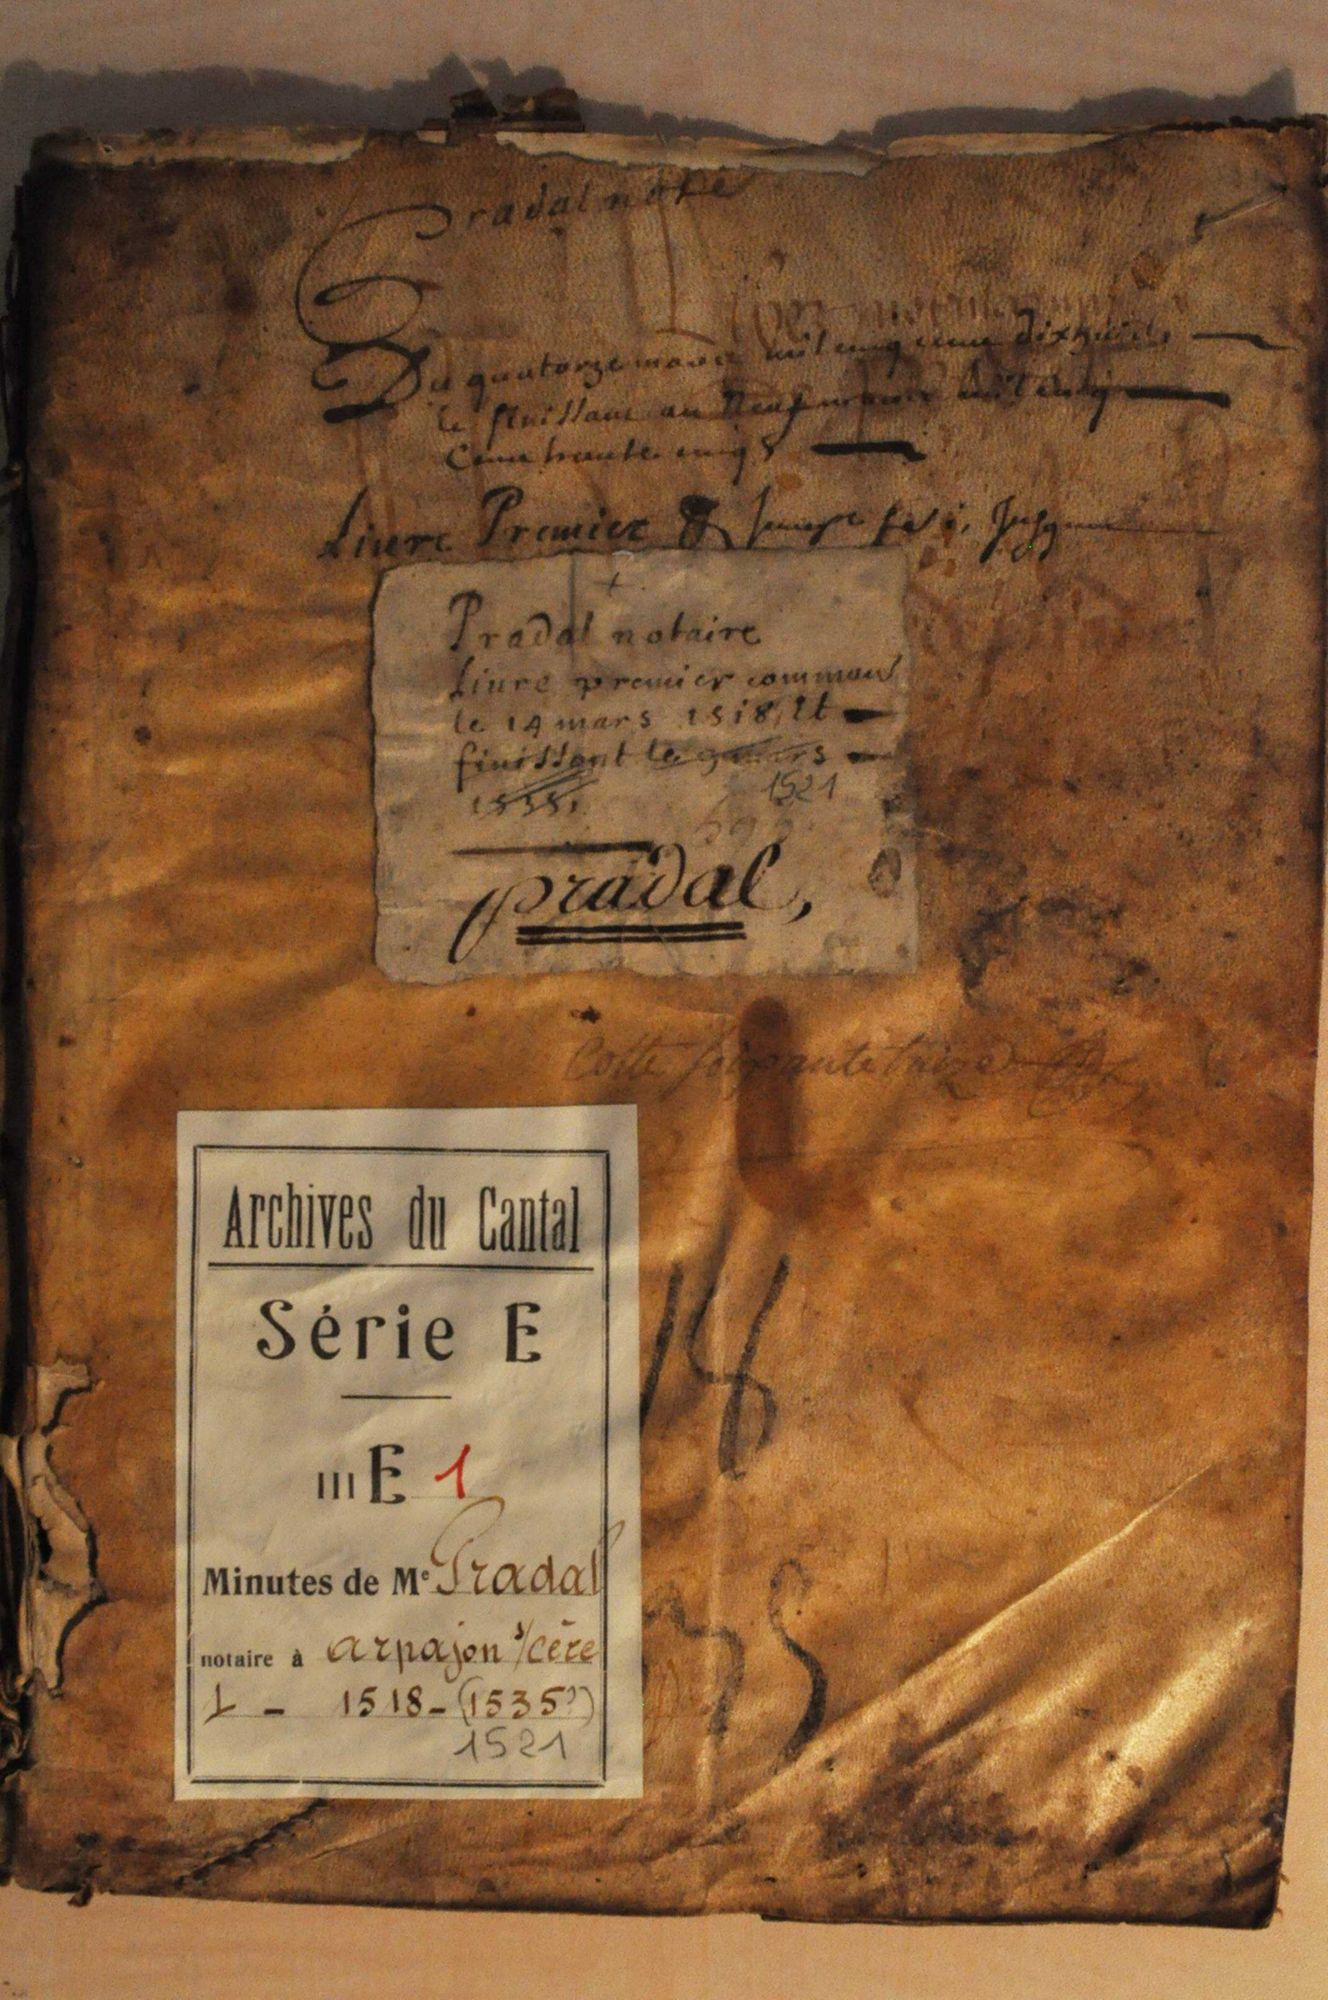 Pradal no.re
Liber notularum
Du quatorze mars mil cinq cens dixhuit
le finissant au Neuf mars mil cinq
Cens trante cinq
Livre Premier
Pradal notaire
Livre premier commen
le 14 mars 1518, et
finissant le 9 mars
1535.
1521
pradal,
Cotte soixante treize
Archives du Cantal
Série E
III E 1
Minutes de Me Pradal
notaire à arpajon s/cère
1 - 1518 - (1535?)
1521